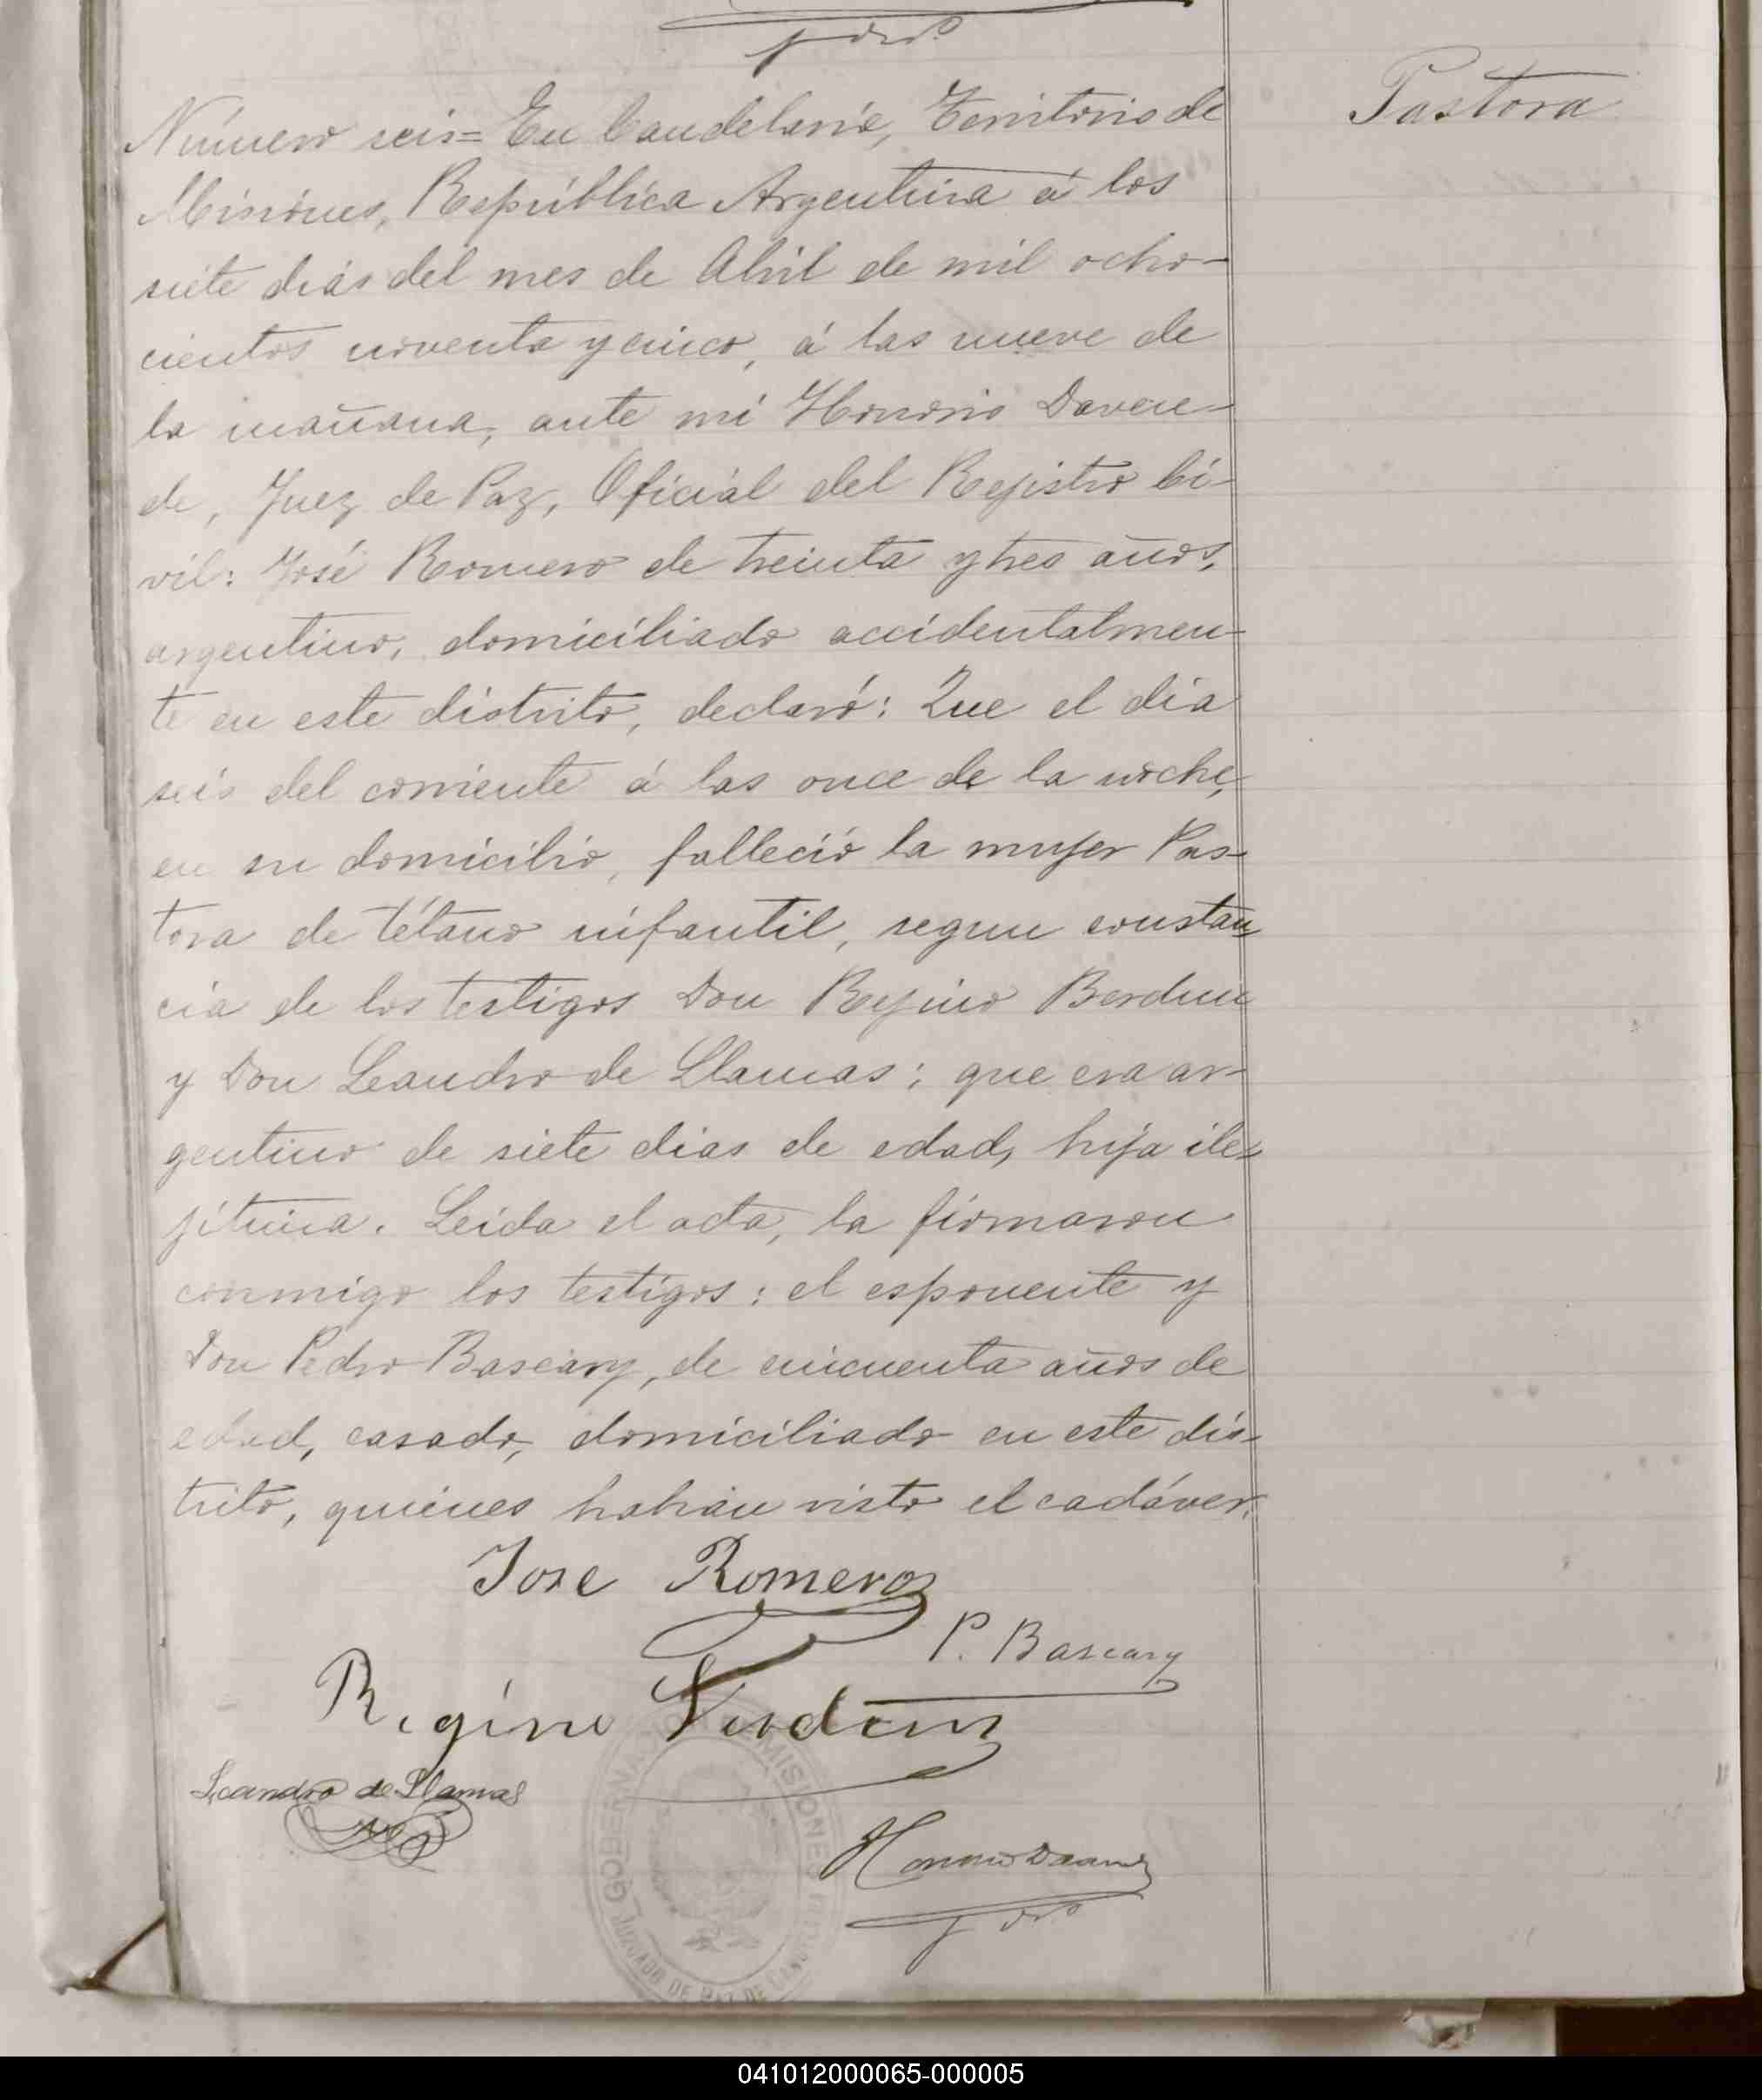 Pastora
Número seis= En Candelaria, Territorio de
Misiones, República Argentina á los
siete dias del mes de Abril de mil ocho-
cientos noventa y cinco, á las nueve de
la mañana, ante mi Honorio Davere-
de, Juez de Paz, Oficial del Rejistro Ci-
vil: José Romero de treinta y tres años,
argentino, domiciliado accidentalmen-
te en este distrito, declaró: Que el dia
seis del corriente á las once de la noche,
en su domicilio, falleció la mujer Pas-
tora de tétano infantil, segun constan-
cia de los testigos Don Rejino Berdun
y Don Leandro de Llamas; que era ar-
gentino de siete dias de edad, hija ile-
jítima. Leida el acta, la firmaron
conmigo los testigos: el esponente y
Don Pedro Bascary, de cincuenta años de
edad, casado, domiciliado en este dis-
trito, quienes habian visto el cadáver.
Jose Romero
P. Bascary
Regino Verdun
Leandro de Llamas
GOBERNA MISIONES
JUZGADO DE PAZ DE CANDELARIA
041012000065-000005